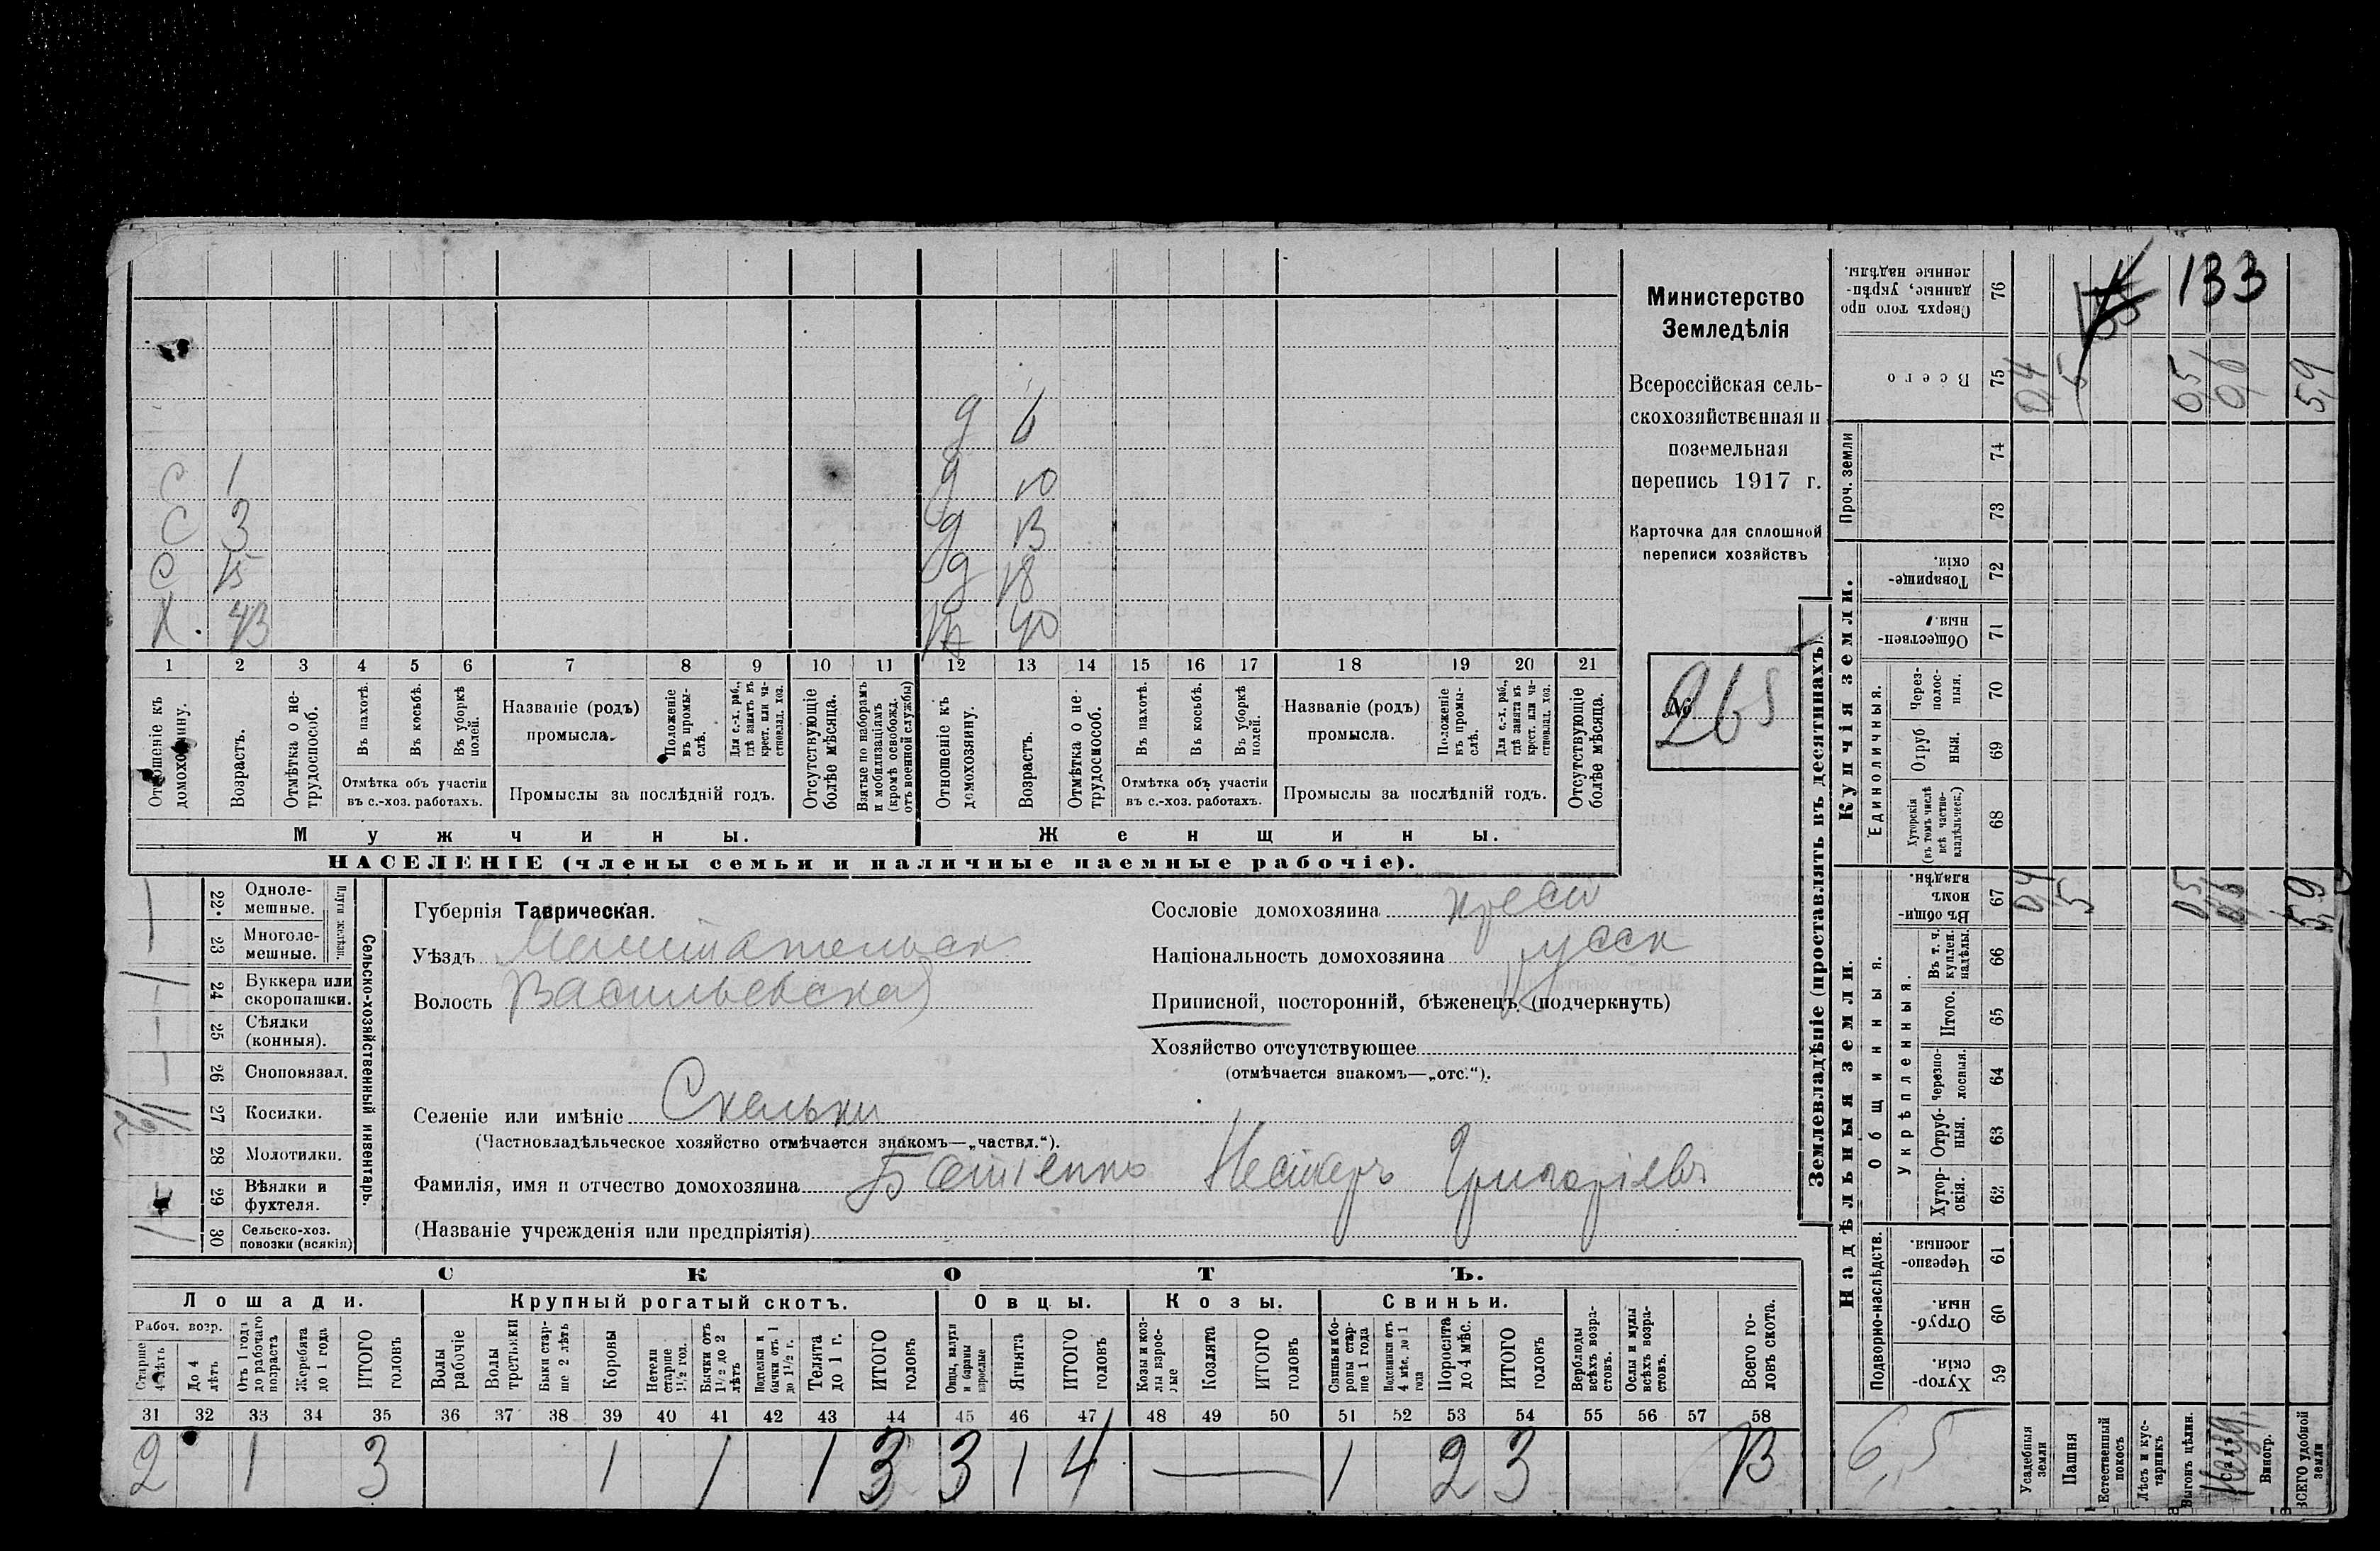 Министерство
Земледѣлія
Всероссійская сель-
скохозяйственная и
поземельная
перепись 1917 г.
Карточка для сплошной
переписи хозяйствъ
№ 265
д 6
С 1 д 10
С 3 д 13
С 15 д 18
Х. 43 40
1 2 3 4 5 6 7 8 9 10 11 12 13 14 15 16 17 18 19 20 21
Отношеніе къ домохозяину.
Возрастъ.
Отмѣтка о не-трудоспособ.
Въ пахотѣ.
Въ косьбѣ.
Въ уборкѣ полей.
Отмѣтка объ участіи
въ с.-хоз. работахъ.
Названіе (родъ)
промысла.
Положеніе въ промы-слѣ.
Для с.-х. раб., гдѣ занятъ въ крест. или ча-стновлад. хоз.
Промыслы за послѣдній годъ.
Отсутствующіе болѣе мѣсяца.
Взятые по наборамъ и мобилизаціямъ (кромѣ освобожд. отъ военной службы)
Отношеніе къ домохозяину.
Возрастъ.
Отмѣтка о не-трудоспособ.
Въ пахотѣ.
Въ косьбѣ.
Въ уборкѣ полей.
Отмѣтка объ участіи
въ с.-хоз. работахъ.
Названіе (родъ)
промысла.
Положеніе въ промы-слѣ.
Для с.-х. раб., гдѣ занята въ крест. или ча-стновлад. хоз.
Промыслы за послѣдній годъ.
Отсутствующіе болѣе мѣсяца.
Мужчины. Женщины.
НАСЕЛЕНІЕ (члены семьи и наличные наемные рабочіе).
Сельско-хозяйственный инвентарь.
Плуги желѣзн.
22. Одноле-мешные.
23 Многоле-мешные.
24 Буккера или скоропашки.
25 Сѣялки (конныя).
26 Сноповязал.
27 Косилки.
28 Молотилки.
29 Вѣялки и фухтеля.
30 Сельско-хоз. повозки (всякія)
Губернія Таврическая.
Уѣздъ Мелитопельск
Волость Васильевская
Селеніе или имѣніе Скельки
(Частновладѣльческое хозяйство отмѣчается знакомъ—„частвл.“).
Фамилія, имя и отчество домохозяина Нестеръ Григорьевъ
(Названіе учрежденія или предпріятія)
Сословіе домохозяина крест
Національность домохозяина русск
Приписной, посторонній, бѣженецъ (подчеркнуть)
Хозяйство отсутствующее
(отмѣчается знакомъ—„отс.“).
СКОТЪ.
Лошади. Крупный рогатый скотъ. Овцы. Козы. Свиньи.
Рабоч. возр.
Старше 4 лѣтъ
До 4 лѣтъ
Отъ 1 года до рабочаго возраста
Жеребята до 1 года
ИТОГО головъ
Волы рабочіе
Волы третьяки
Быки стар-ше 2 лѣтъ
Коровы
Нетели старше 1½ год.
Бычки отъ 1½ до 2 лѣтъ
Подтелки и бычки отъ 1 до 1½ г.
Телята до 1 г.
ИТОГО головъ
Овцы, валухи и бараны взрослые
Ягнята
ИТОГО головъ
Козы и коз-лы взрос-лые
Козлята
ИТОГО головъ
Свиньи и бо-ровы стар-ше 1 года
Подсвинки отъ 4 мѣс. до 1 года
Поросята до 4 мѣс.
ИТОГО головъ
Верблюды всѣхъ возра-стовъ.
Ослы и мулы всѣхъ возра-стовъ.
Всего го-ловъ скота.
31 32 33 34 35 36 37 38 39 40 41 42 43 44 45 46 47 48 49 50 51 52 53 54 55 56 57 58
2 1 3 1 1 1 3 3 1 4 — 1 2 3 13
Землевладѣніе (проставлять въ десятинахъ).
Надѣльныя земли. Купчія земли. Проч. земли
Подворно-наслѣдств. Общинныя. Укрѣпленныя. Единоличныя.
59 Хутор-скія.
60 Отруб-ныя.
61 Черезпо-лосныя.
62 Хутор-скія.
63 Отруб-ныя.
64 Черезпо-лосныя.
65 Итого.
66 Въ т. ч. куплен. надѣлы.
67 Въ общи-номъ владѣн.
68 Хуторскія (въ томъ числѣ всѣ частно-владѣльческ.)
69 Отруб ныя.
70 Через-полос-ныя.
71 Обществен-ныя.
72 Товарище-скія.
73
74
75 Всего
76 Сверхъ того про даные, укрѣп-ленные надѣлы.
133
04 5 05 06 5,9
04 5 05 06 5,9
6,5
Усадебныя земли
Пашня
Естественный покосъ
Лѣсъ и кус-тарникъ
Выгонъ цѣлин.
Виногр.
ВСЕГО удобной земли